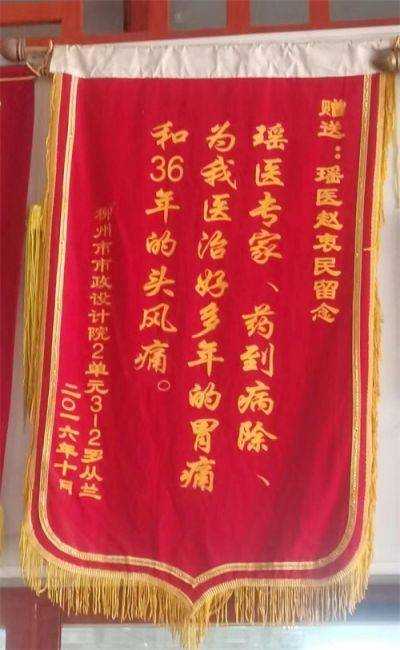 赠送：瑶医赵衷民留念
瑶医专家、药到病除、
为我医治好多年的胃痛
和36年的头风痛。
柳州市市政设计院2单元3-2罗从兰
二〇一六年十月